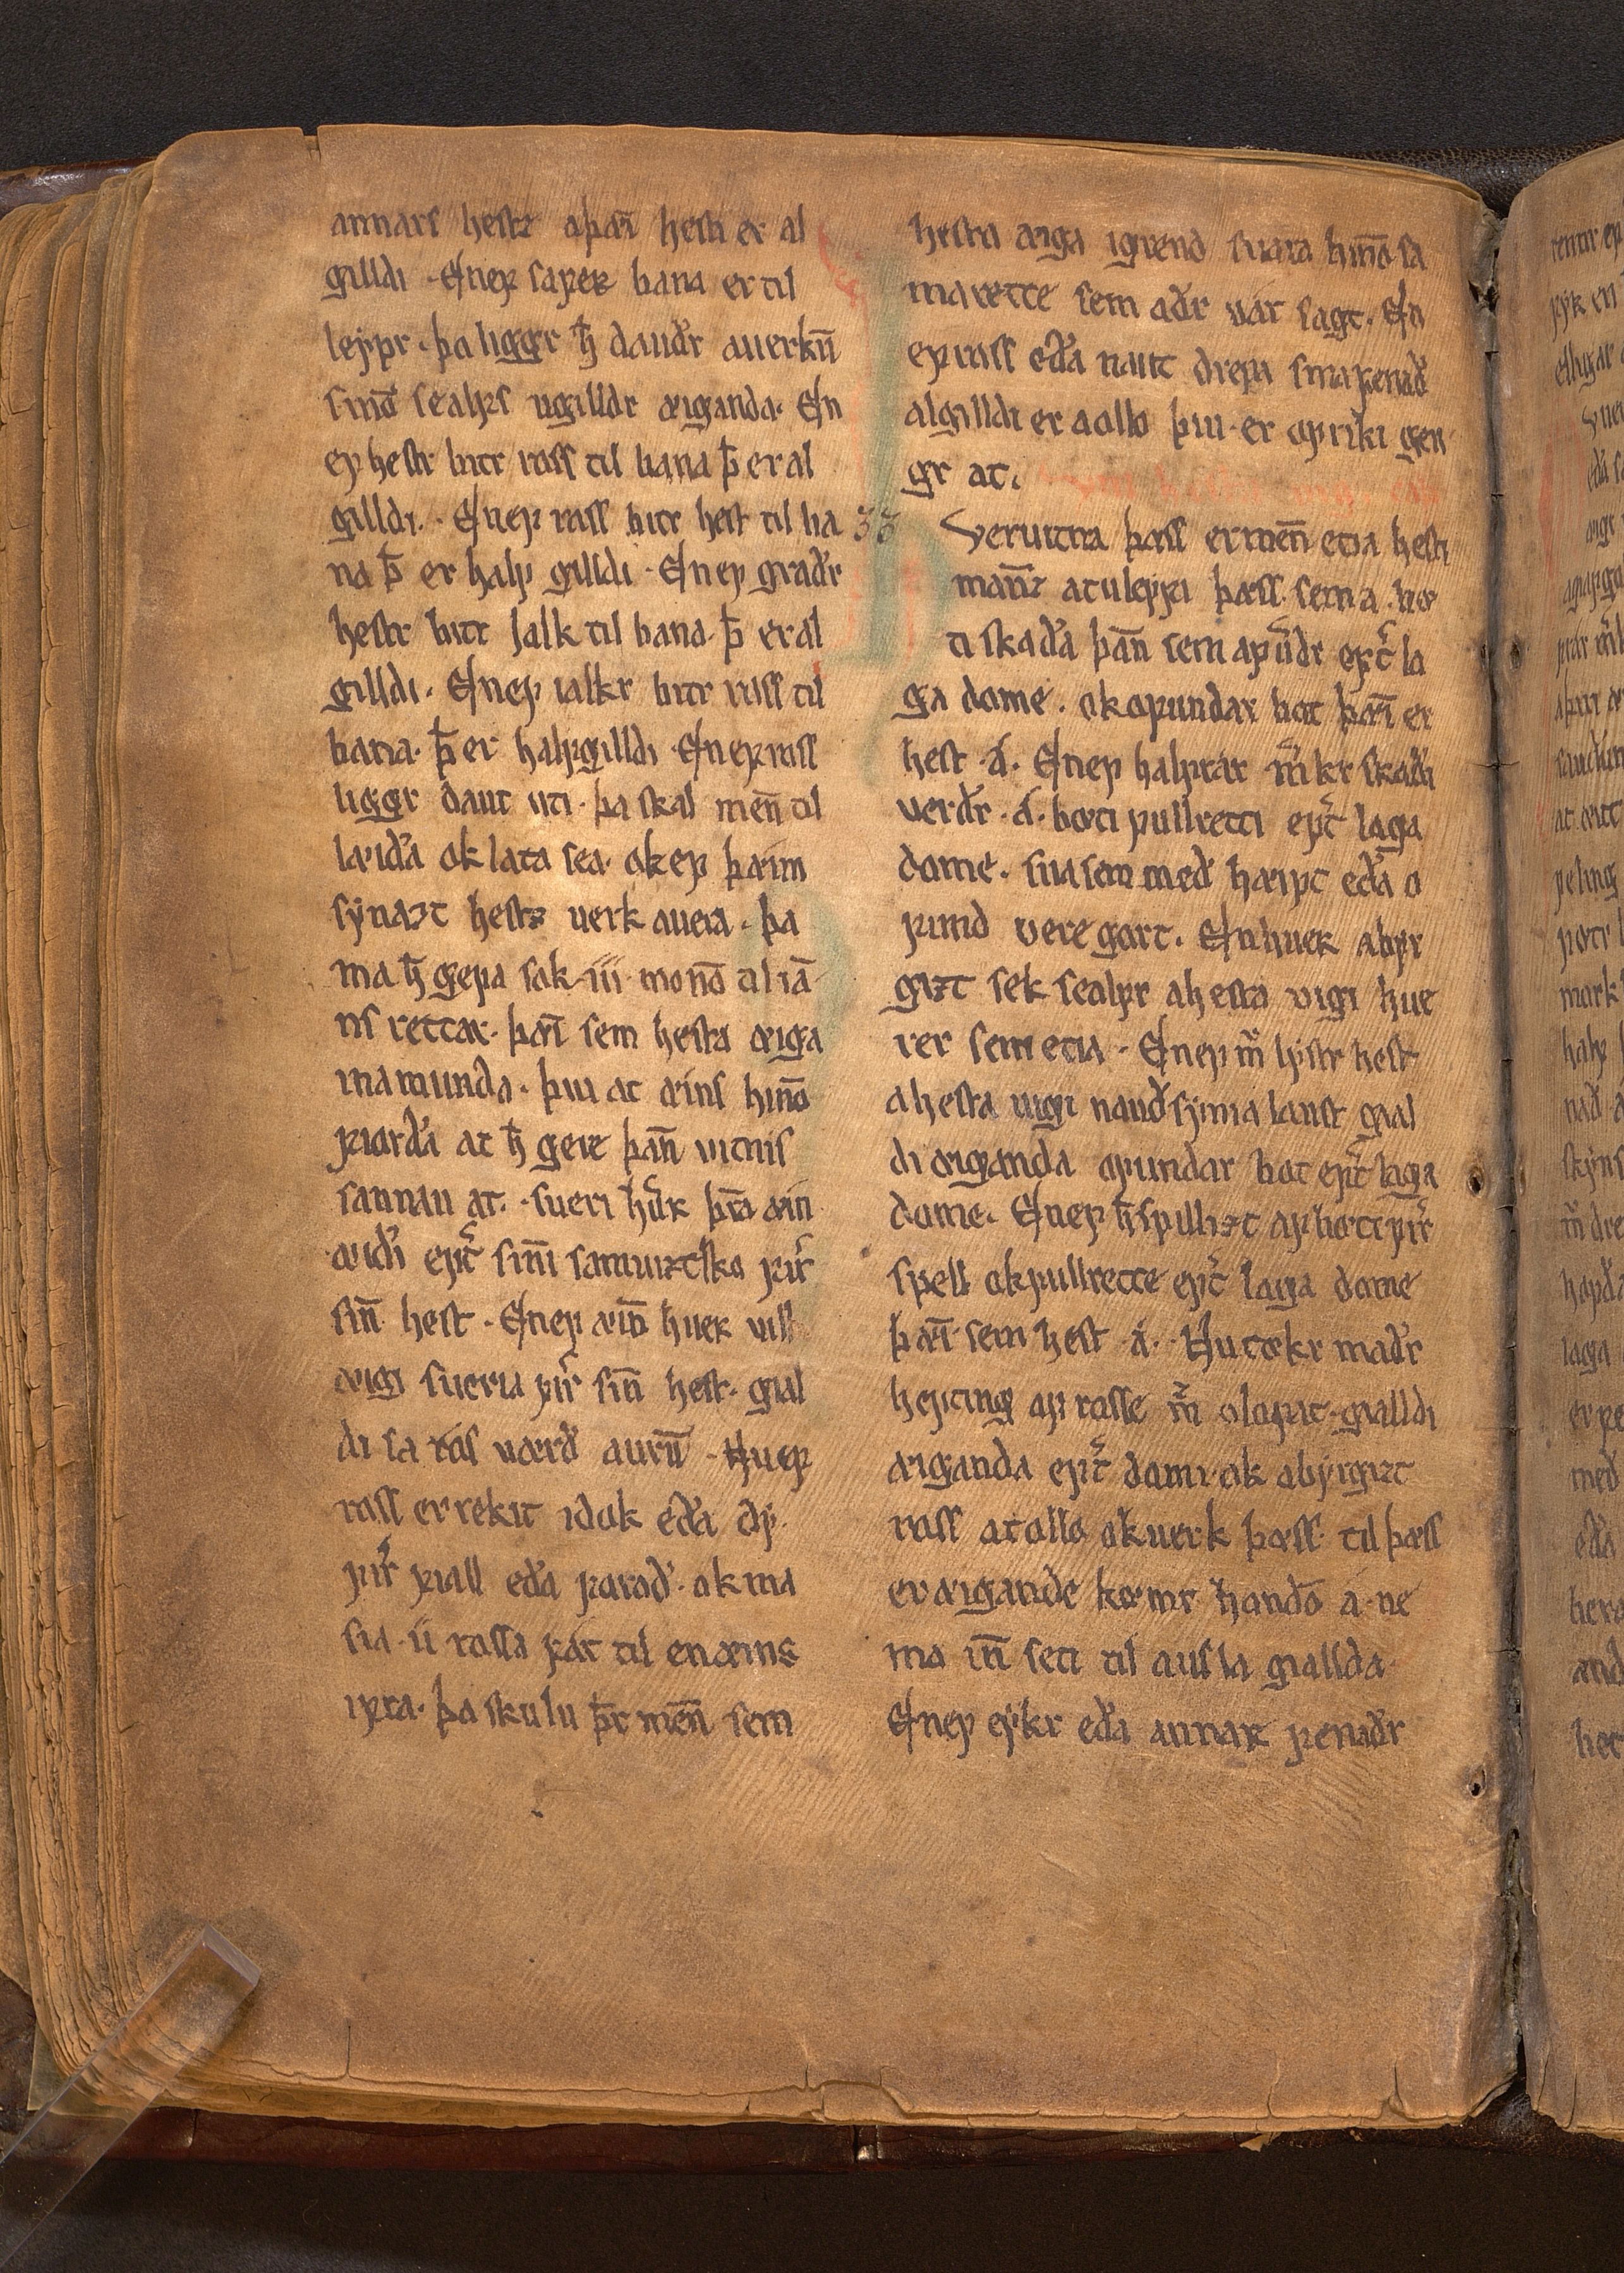 annars hestz aþān hesti er al
gilldi · En eꝼ sa ꝼer bana er til
leypr · þa liggr ħ daudr auerkū
sinō sealꝼs ugilldr æiganda · En
eꝼ hestr bitr ross til bana þ̄ er al
gilldi · En eꝼ ross bitr hest til ba
na þ̄ er halꝼ gilldi · En eꝼ gradr
hestr bitr ialk til bana · þ̄ er al
gilldi · En eꝼ ialkr bitr ross til
bana · þ̄ er halꝼgilldi · En eꝼ ross
liggr daut uti · þa skal men̄ til
læida ok lata sea · ok eꝼ þæim
synazt hestz uerk auera · þa
ma ħ geꝼa sak · iij · monnō til iā
ns rettar · þæī sem hesta æiga
ma munda · þui at æins hinō
ꝼiorda at ħ gere þan̄ vitnis
sannan at · sueri hu͛r þr̄a æin
æidi eꝼt͛ sinni samuizsko ꝼir͛
sin̄ hest · En eꝼ æinhuer uill
æigi sueria ꝼir͛ sin̄ hest · gial
di sa ros uærd aurū · Hu eꝼ
ross er rekit idok eda dy ·
ꝼir͛ ꝼiall eda ꝼorad · ok ma
sia · ij rossa ꝼar til en æins
iꝼra · þa skulu þr̄ men̄ sem
hesta æiga igrend suara hinō sa
ma rette sem adr var sagt · En
eꝼ ross eda naut drepa smaꝼenad
algilldi er a ollo þui · er aꝼ riki gen
gr at ·
33 veruitna þæss er men̄ etia hesti
man̄z at uleyꝼi þæss · sem a · bø
ti skada þan̄ sem aꝼu͛dr eꝼt͛ la
ga dome · ok oꝼundar bot þæī er
hest · á · En eꝼ halꝼrar m͛kr skadi
verdr · á · bøti ꝼullretti eꝼt͛ laga
dome · sua sem med hæipt eda o
ꝼund vere gort · En huer abyr
gizt sek sealꝼr a hesta vigi hue
rer sem etia · En eꝼ m̄ lystr hest
a hesta uigi naudsynia laust gial
di æiganda oꝼundar bot eꝼt͛ laga
dome · En eꝼ ħ spillizt aꝼ bøti ꝼir͛
spell ok ꝼullrette eꝼt͛ laga dome
þæī sem hest · á · Hu tøkr madr
heꝼting aꝼ rosse m̄ oloꝼat · gialldi
æiganda eꝼt͛ domi · ok abyrgizt
ross at ollo ok uerk þæss · til þæss
er æigande kømr hondō á · ne
ma in̄ seti til ausla giallda ·
En eꝼ eykr eda annar ꝼenadr